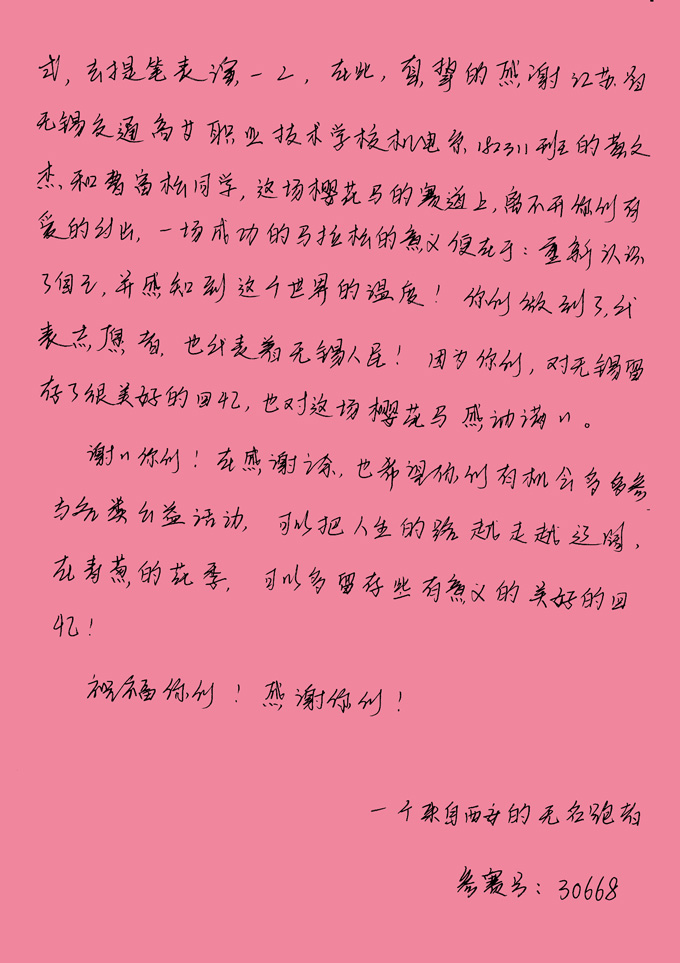 式，去提笔表演一二，在此，真挚的感谢江苏省
无锡交通高等职业技术学校机电系182311班的黄文
杰和曹富松同学，这场樱花马的赛道上，离不开你们有
爱的付出，一场成功的马拉松的意义便在于：重新认识
了自己，并感知到这个世界的温度！你们做到了，代
表志愿者，也代表着无锡人民！因为你们，对无锡留
存了很美好的回忆，也对这场樱花马感动满满。
谢谢你们！在感谢之余，也希望你们有机会多多参
与各类公益活动，可以把人生的路越走越辽阔，
在青葱的花季，可以多留存些有意义的美好的回
忆！
祝福你们！感谢你们！
一个来自西安的无名跑者
参赛号：30668